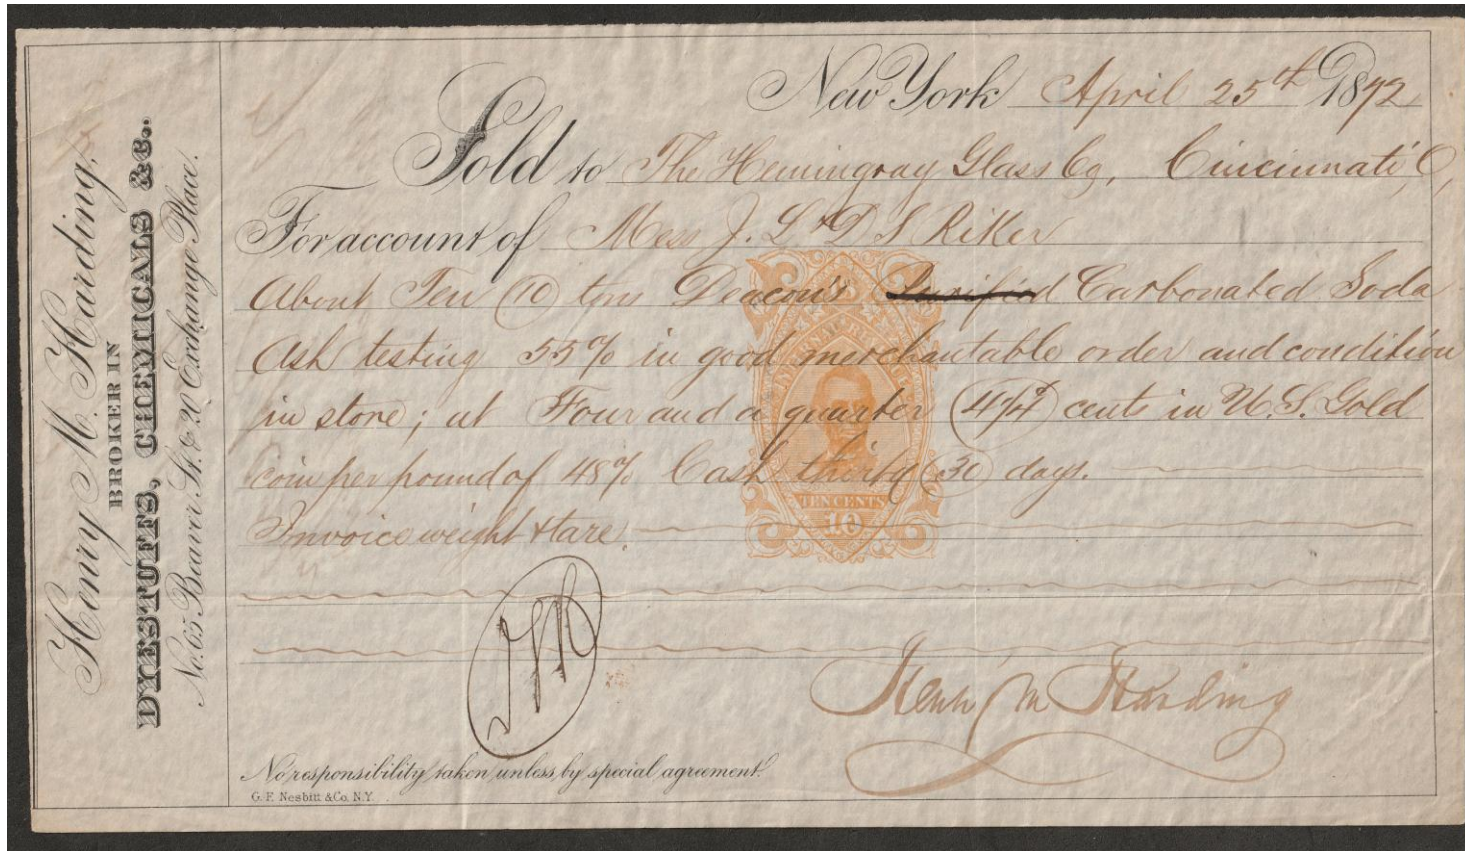 Henry M. Harding,
BROKER IN
DYESTUFFS, CHEMICALS &c.
No. 65 Beaver St. & 20 Exchange Place.
New York April 25th 1872
Sold to The Hemingray Glass Co, Cincinnati, O,
For account of Mess J. L & D S Riker
About Ten (10) tons Deacon's Purified Carbonated Soda
Ash testing 55% in good merchantable order and condition
in store; at Four and a quarter (4 1/4) cents in U.S. Gold
coin per pound of 48% Cash thirty (30) days.
Invoice weight & tare.
INTERNAL REVENUE
TEN CENTS
10
Henry M Harding
No responsibility taken unless by special agreement.
G. F. Nesbitt & Co. N.Y.